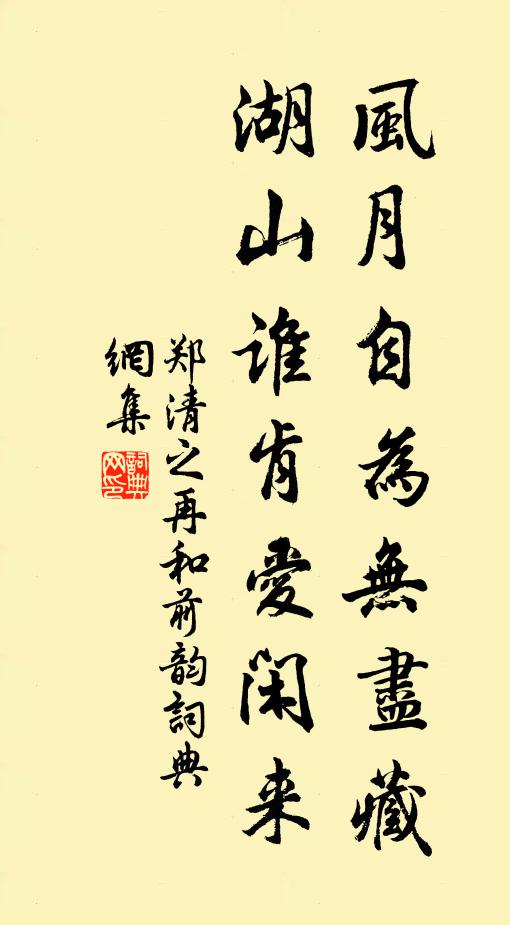 風月自為無盡藏
湖山誰肯愛閑来
郑清之再和前韵詞典
網集
詞典
网印